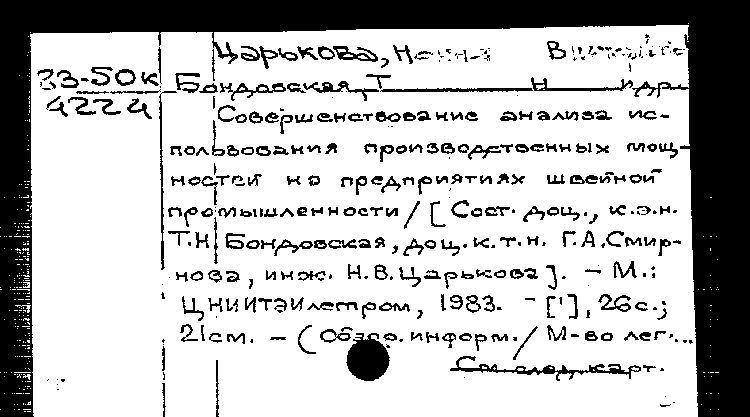 Царькова, Н
33-50к Бондовская, Т Н и др.
4224 Совершенствование анализа ис-
пользования производственных мощ-
ностей на предприятиях швейной
промышленности / [Сост. доц., к.э.н.
Т.Н. Бондовская, доц. к.т.н. Г.А. Смир-
нова, инж. Н.В. Царькова]. – М.:
ЦНИИТЭИлегпром, 1983. – ['], 26 с.;
21см. – (Обзор. информ. / М-во лег...
См. след. карт.